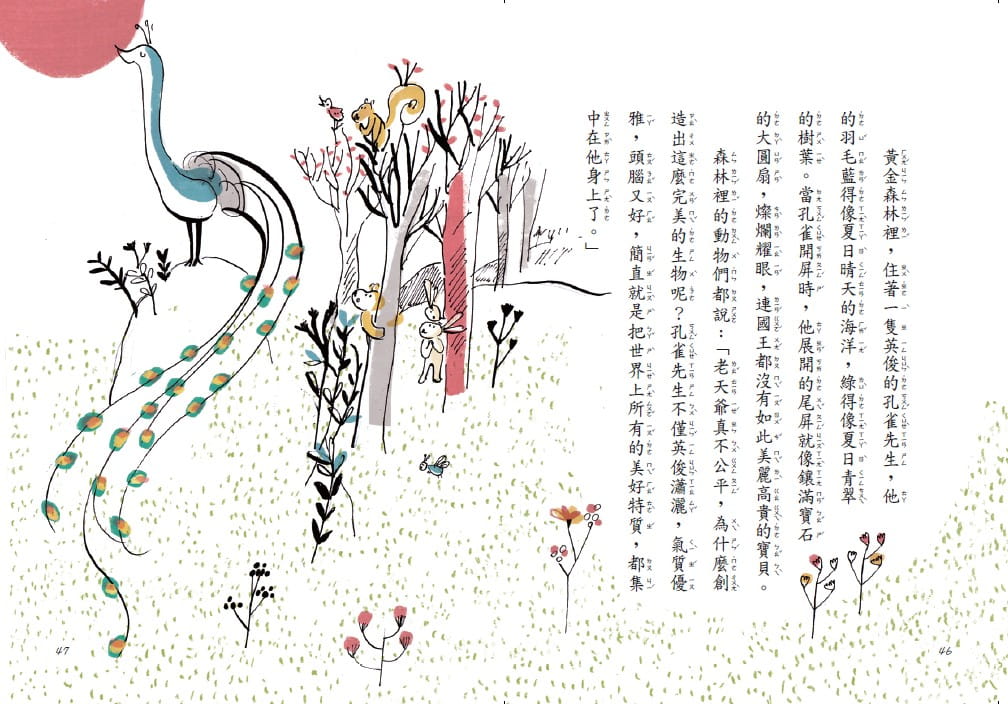 黃金森林裡，住著一隻英俊的孔雀先生，他
的羽毛藍得像夏日晴天的海洋，綠得像夏日青翠
的樹葉。當孔雀開屏時，他展開的尾屏就像鑲滿寶石
的大圓扇，燦爛耀眼，連國王都沒有如此美麗高貴的寶貝。
森林裡的動物們都說：「老天爺真不公平，為什麼創
造出這麼完美的生物呢？孔雀先生不僅英俊瀟灑，氣質優
雅，頭腦又好，簡直就是把世界上所有的美好特質，都集
中在他身上了。」
46
47